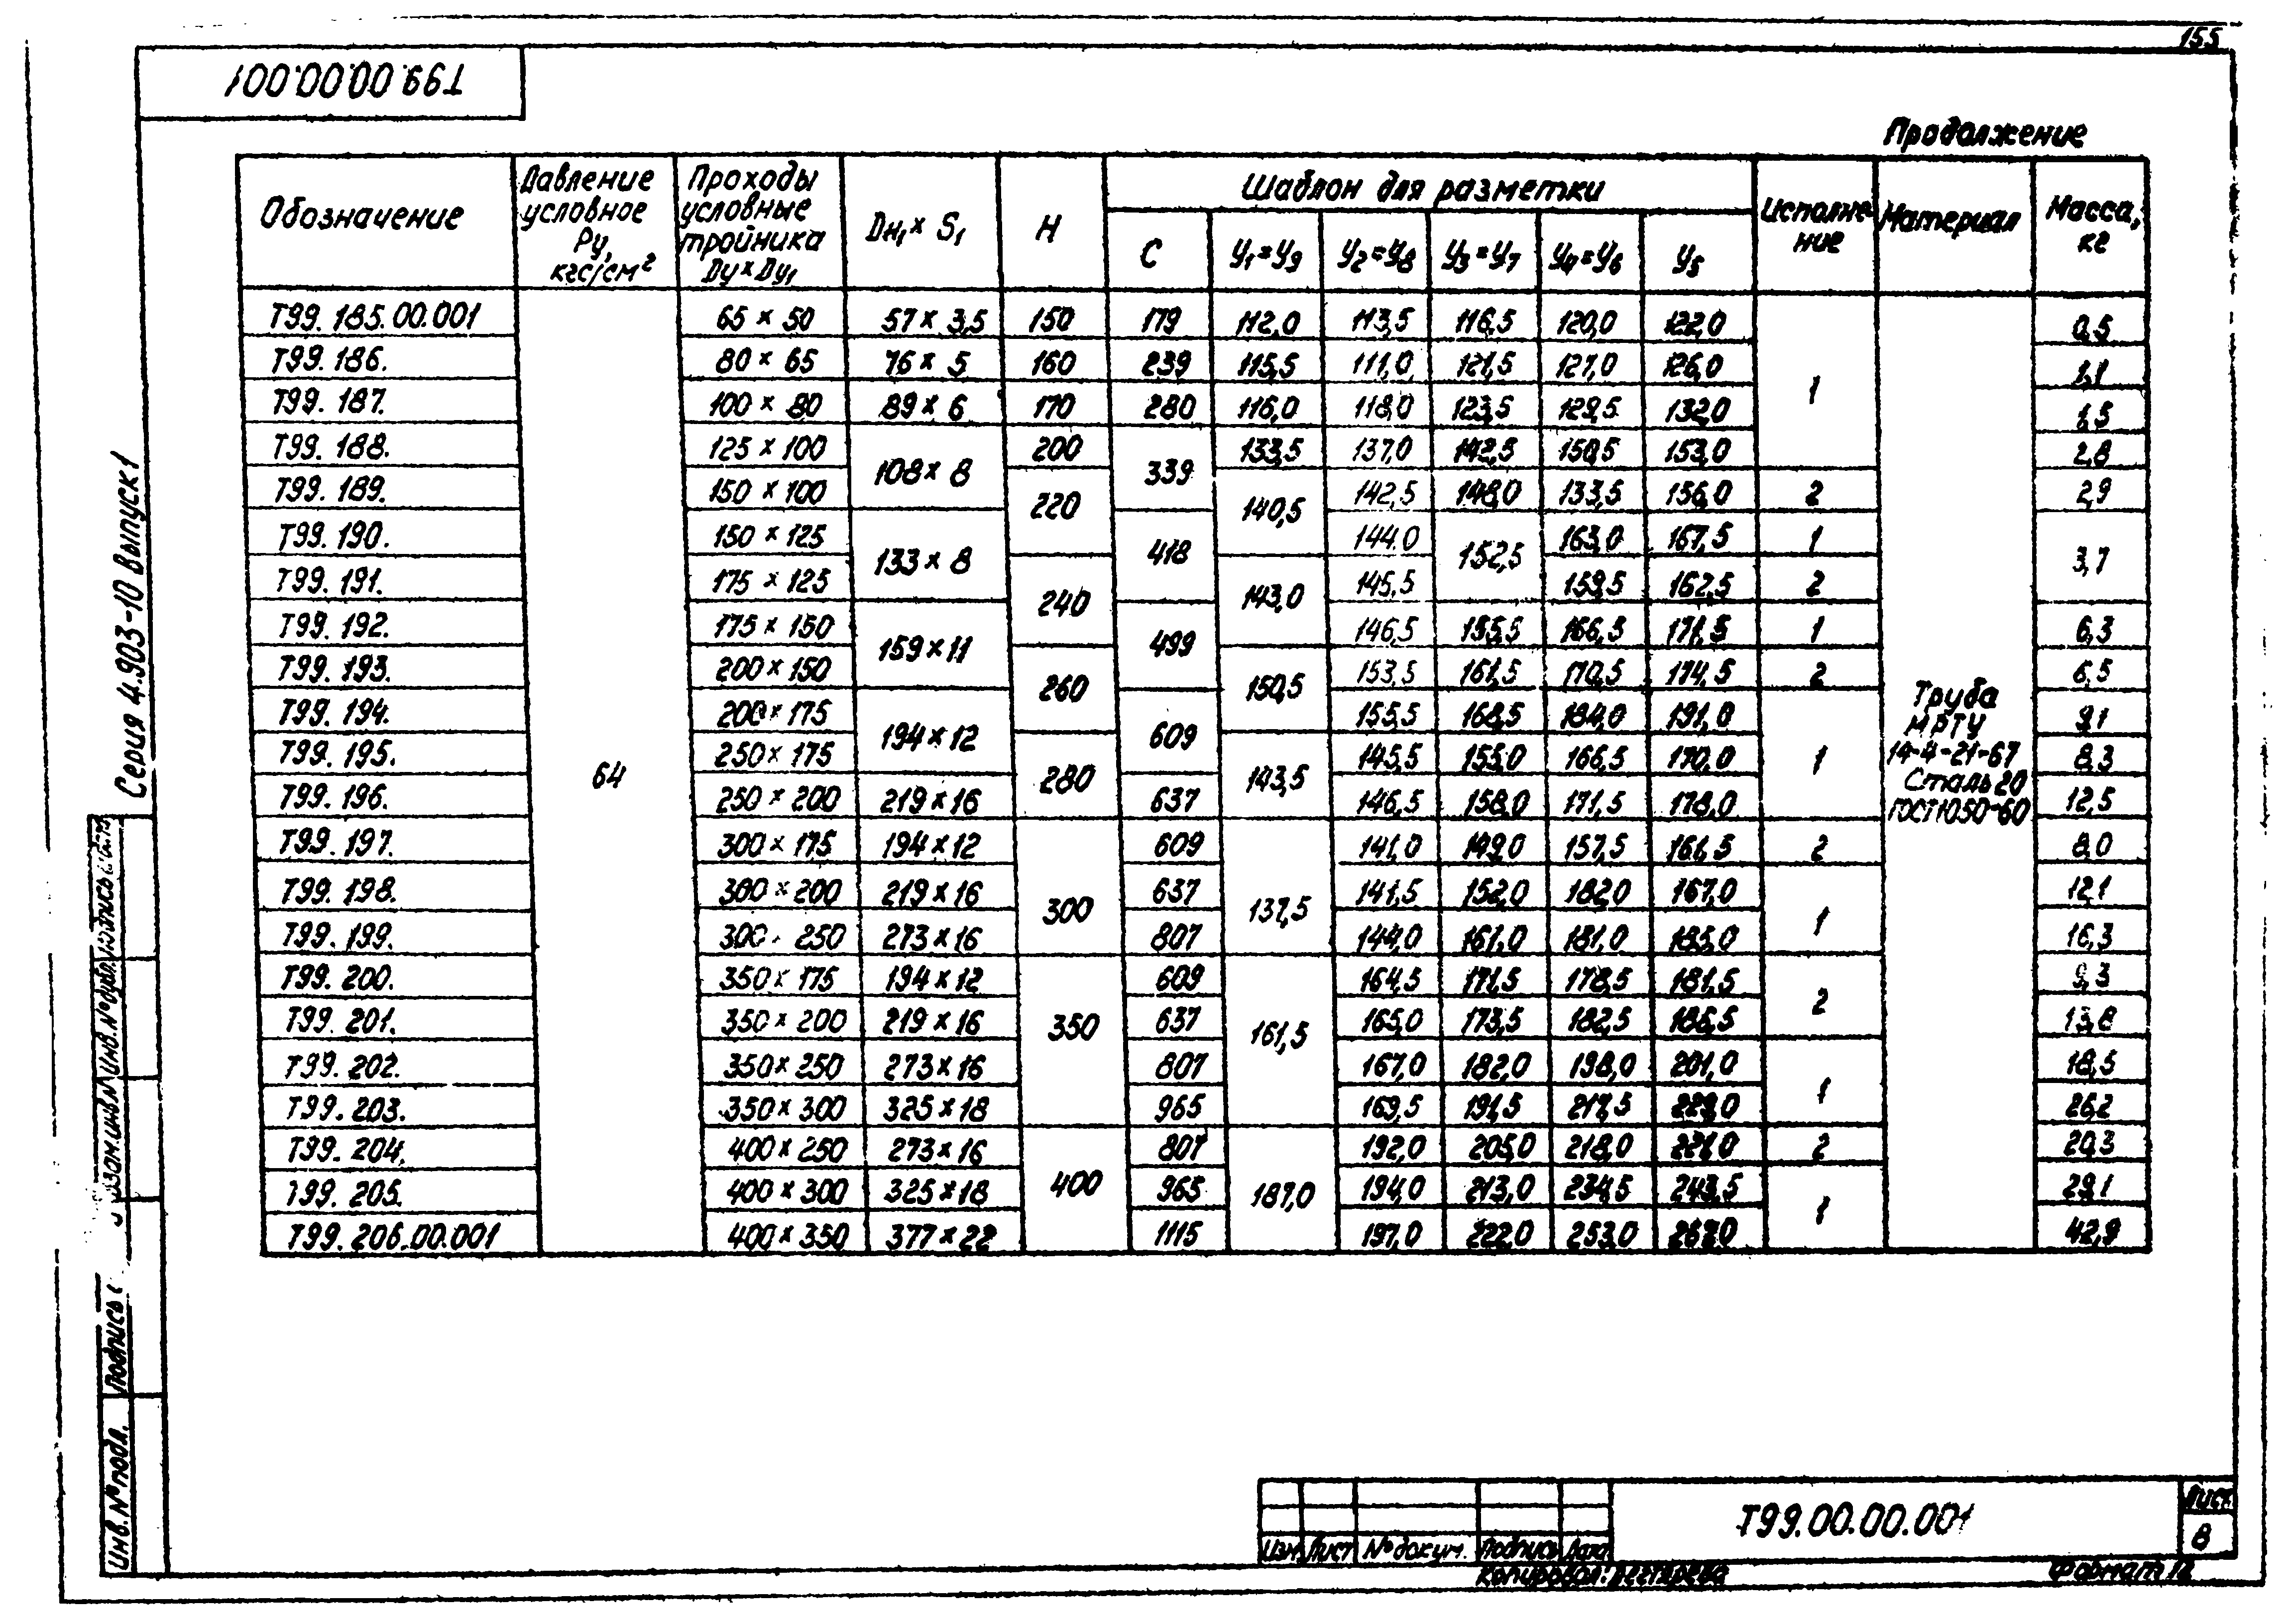 155
Т99.00.00.001
Продолжение
Обозначение | Давление условное Ру, кгс/см² | Проходы условные тройника Dу×Dу1 | Dн1× S1 | H | Шаблон для разметки | Исполнение | Материал | Масса, кг
C | У1=У9 | У2=У8 | У3=У7 | У4=У6 | У5
Т99. 185.00.001 | 64 | 65 × 50 | 57 × 3,5 | 150 | 179 | 112,0 | 113,5 | 116,5 | 120,0 | 122,0 | 1 | Труба МРТУ 14-4-21-67 Сталь 20 ГОСТ1050-60 | 0,5
Т99. 186. | 80 × 65 | 76 × 5 | 160 | 239 | 115,5 | 111,0 | 121,5 | 127,0 | 126,0 | 1,1
Т99. 187. | 100 × 80 | 89 × 6 | 170 | 280 | 116,0 | 118,0 | 123,5 | 129,5 | 132,0 | 1,5
Т99. 188. | 125 × 100 | 108 × 8 | 200 | 339 | 133,5 | 137,0 | 142,5 | 150,5 | 153,0 | 2,8
Т99. 189. | 150 × 100 | 220 | 140,5 | 142,5 | 148,0 | 133,5 | 156,0 | 2 | 2,9
Т99. 190. | 150 × 125 | 133 × 8 | 418 | 144,0 | 152,5 | 163,0 | 167,5 | 1 | 3,7
Т99. 191. | 175 × 125 | 240 | 143,0 | 145,5 | 159,5 | 162,5 | 2
Т99. 192. | 175 × 150 | 159 × 11 | 499 | 146,5 | 155,5 | 166,5 | 171,5 | 1 | 6,3
Т99. 193. | 200 × 150 | 260 | 150,5 | 153,5 | 161,5 | 170,5 | 174,5 | 2 | 6,5
Т99. 194. | 200 × 175 | 194 × 12 | 609 | 155,5 | 168,5 | 184,0 | 191,0 | 1 | 9,1
Т99. 195. | 250 × 175 | 280 | 143,5 | 145,5 | 155,0 | 166,5 | 170,0 | 8,3
Т99. 196. | 250 × 200 | 219 × 16 | 637 | 146,5 | 158,0 | 171,5 | 178,0 | 12,5
Т99. 197. | 300 × 175 | 194 × 12 | 300 | 609 | 137,5 | 141,0 | 149,0 | 157,5 | 161,5 | 2 | 8,0
Т99. 198. | 300 × 200 | 219 × 16 | 637 | 141,5 | 152,0 | 182,0 | 167,0 | 1 | 12,1
Т99. 199. | 300 × 250 | 273 × 16 | 807 | 144,0 | 161,0 | 181,0 | 185,0 | 16,3
Т99. 200. | 350 × 175 | 194 × 12 | 350 | 609 | 161,5 | 164,5 | 171,5 | 178,5 | 181,5 | 2 | 9,3
Т99. 201. | 350 × 200 | 219 × 16 | 637 | 165,0 | 173,5 | 182,5 | 186,5 | 13,8
Т99. 202. | 350 × 250 | 273 × 16 | 807 | 167,0 | 182,0 | 198,0 | 201,0 | 1 | 18,5
Т99. 203. | 350 × 300 | 325 × 18 | 965 | 169,5 | 191,5 | 217,5 | 26,2
Т99. 204. | 400 × 250 | 273 × 16 | 400 | 807 | 187,0 | 192,0 | 205,0 | 218,0 | 2 | 20,3
Т99. 205. | 400 × 300 | 325 × 18 | 965 | 194,0 | 213,0 | 234,5 | 243,5 | 1 | 29,1
Т99. 206.00.001 | 400 × 350 | 377 × 22 | 1115 | 197,0 | 222,0 | 253,0 | 42,9
Серия 4.903-10 выпуск 1
Подпись
Инв.№дубл.
Взам.инв.№
Подпись
Инв.№подл.
Изм. Лист №докум. Подпись Дата
Т99.00.00.001
Лист
8
Копировал:
Формат 12